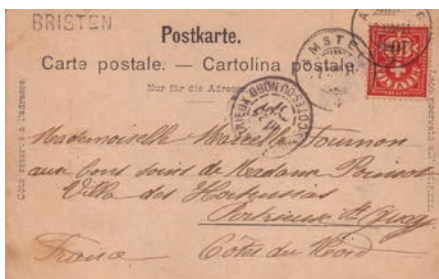 BRISTEN
Postkarte.
Carte postale. — Cartolina postale.
Nur für die Adresse
Côté réservé à l'adresse.
AMSTEG
PORTRIEUX COTES DU NORD
10
Mademoiselle Marcelle Fournon
aux bons soins de Madame
Villa des Hortensias
Portrieux St Quay
France Côtes du Nord